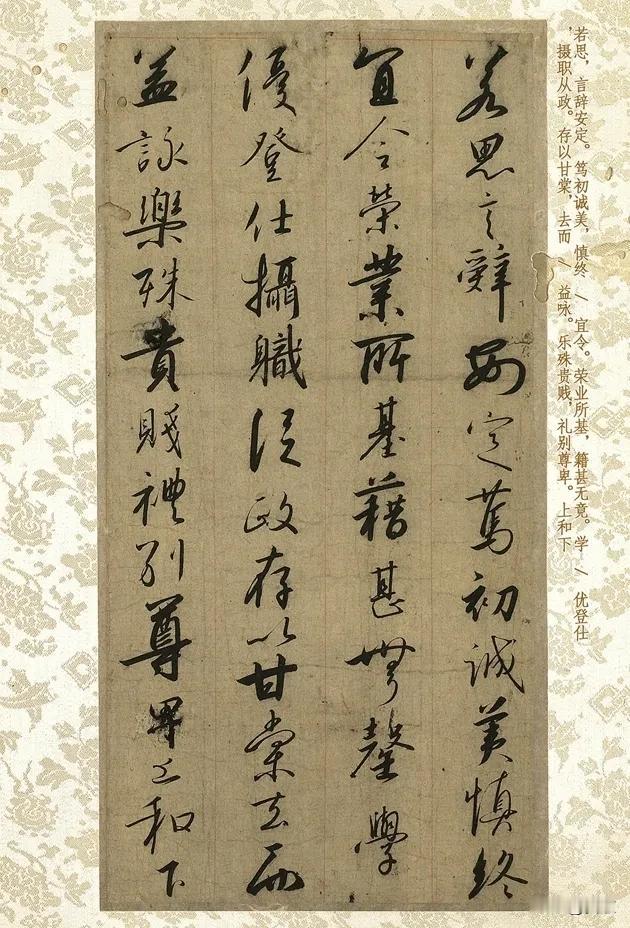 若思，言辞安定。笃初诚美，慎终 / 宜令。荣业所基，籍甚无竟。学 / 优登仕
，摄职从政。存以甘棠，去而 / 益咏。乐殊贵贱，礼别尊卑。上和下
若思言辭安定篤初誠美慎終
宜令榮業所基藉甚無罄學
優登仕攝職從政存以甘棠去而
益詠樂殊貴賤禮別尊卑上和下